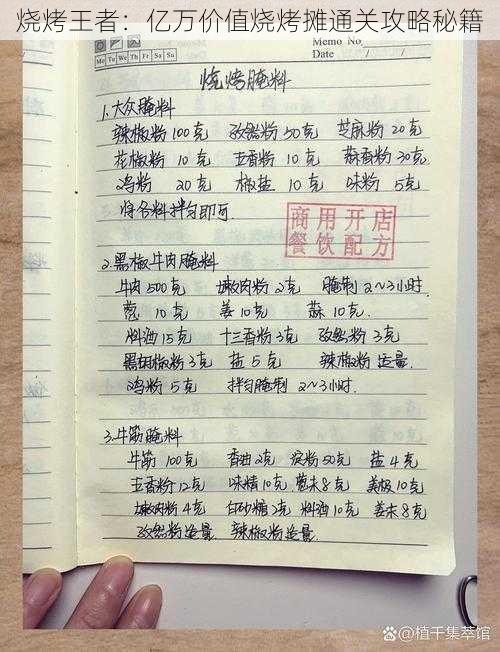 烧烤王者：亿万价值烧烤摊通关攻略秘籍
Memo No.
Mo Tu We Th Fr Sa Su
Date / /
烧烤腌料
1.大众腌料
辣椒粉100克 孜然粉50克 芝麻粉20克
花椒粉 10克 五香粉 10克 蒜香粉30克
鸡粉 20克 椒盐 10克 味粉 5克
将各料拌匀即可
商用开店
餐饮配方
2.黑椒牛肉腌料
牛肉500克 嫩肉粉2克 腌制2~3小时.
葱 10克 姜10克 蒜10克.
料酒15克 十三香粉3克 孜然粉3克
黑胡椒粉3克 盐5克 辣椒粉适量.
鸡粉5克 拌匀腌制 2~3小时.
3.牛筋腌料
牛筋 100克 香油2克 淀粉50克 盐4克
五香粉12克 味精10克 葱末8克 美极10克
嫩肉粉4克 白砂糖2克 料酒10克 姜末8克
孜然粉适量 辣椒粉适量.
@植千集萃馆